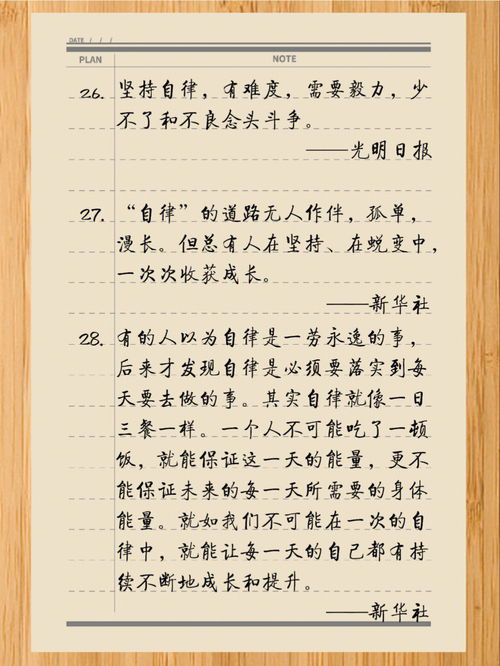 DATE / / /
PLAN NOTE
26. 坚持自律，有难度，需要毅力，少
不了和不良念头斗争。
——光明日报
27. “自律”的道路无人作伴，孤单，
漫长。但总有人在坚持、在蜕变中，
一次次收获成长。
——新华社
28. 有的人以为自律是一劳永逸的事，
后来才发现自律是必须要落实到每
天要去做的事。其实自律就像一日
三餐一样。一个人不可能吃了一顿
饭，就能保证这一天的能量，更不
能保证未来的每一天所需要的身体
能量。就如我们不可能在一次的自
律中，就能让每一天的自己都有持
续不断地成长和提升。
——新华社